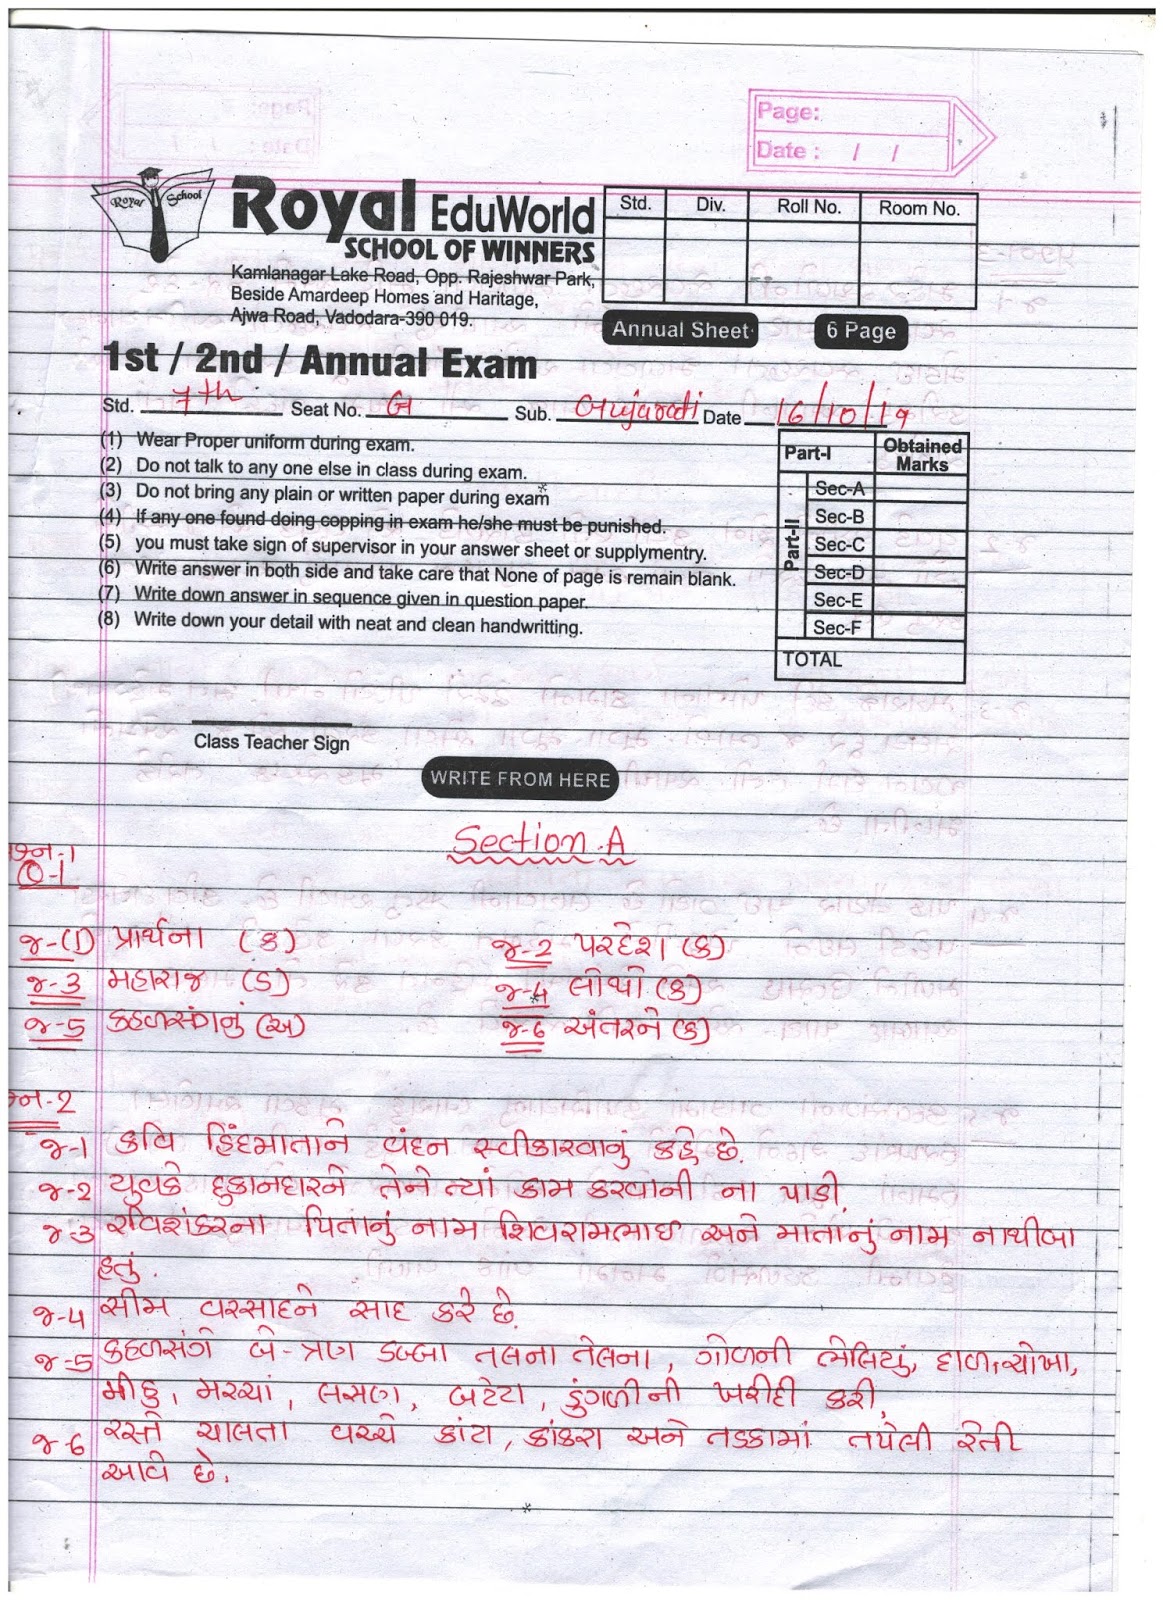 Page:
Date : / /
Royal School
Royal EduWorld
SCHOOL OF WINNERS
Kamlanagar Lake Road, Opp. Rajeshwar Park,
Beside Amardeep Homes and Haritage,
Ajwa Road, Vadodara-390 019.
Std. Div. Roll No. Room No.
Annual Sheet 6 Page
1st / 2nd / Annual Exam
Std. 7th Seat No. G Sub. Gujarati Date 16/10/19
(1) Wear Proper uniform during exam.
(2) Do not talk to any one else in class during exam.
(3) Do not bring any plain or written paper during exam
(4) If any one found doing copping in exam he/she must be punished.
(5) you must take sign of supervisor in your answer sheet or supplymentry.
(6) Write answer in both side and take care that None of page is remain blank.
(7) Write down answer in sequence given in question paper.
(8) Write down your detail with neat and clean handwritting.
Part-I Obtained Marks
Part-II
Sec-A
Sec-B
Sec-C
Sec-D
Sec-E
Sec-F
TOTAL
Class Teacher Sign
WRITE FROM HERE
Section A
પ્રશ્ન-1
Q-1
જ-(1) પ્રાર્થના (ક) જ-2 પરદેશ (ક)
જ-3 મહારાજ (ડ) જ-4 લીથો (ક)
જ-5 કહળસંગનું (અ) જ-6 અંતરને (ક)
પ્રશ્ન-2
જ-1 કવિ હિંદમાતાને વંદન સ્વીકારવાનું કહે છે.
જ-2 યુવકે દુકાનદારને તેને ત્યાં કામ કરવાની ના પાડી.
જ-3 રવિશંકરના પિતાનું નામ શિવરામભાઈ અને માતાનું નામ નાથીબા
હતું.
જ-4 સીમ વરસાદને સાદ કરે છે.
જ-5 કહળસંગે બે-ત્રણ ડબ્બા તલના તેલના, ગોળની ભેલિયું, દાળ, ચોખા,
મીઠુ, મરચાં, લસણ, બટેટા, ડુંગળીની ખરીદી કરી.
જ-6 રસ્તે ચાલતા વચ્ચે કાંટા, કાંકરા અને તડકામાં તપેલી રેતી
આવે છે.